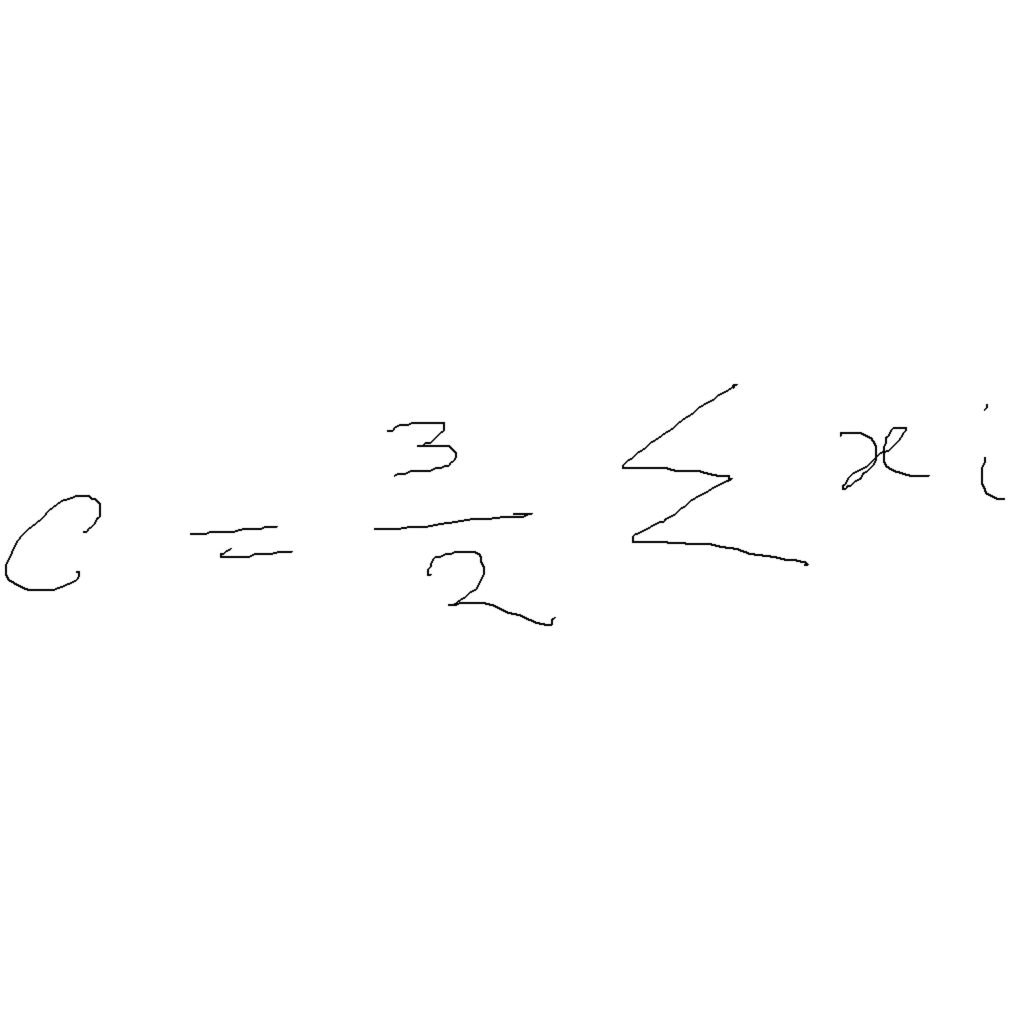 C = \frac{3}{2} \sum x i